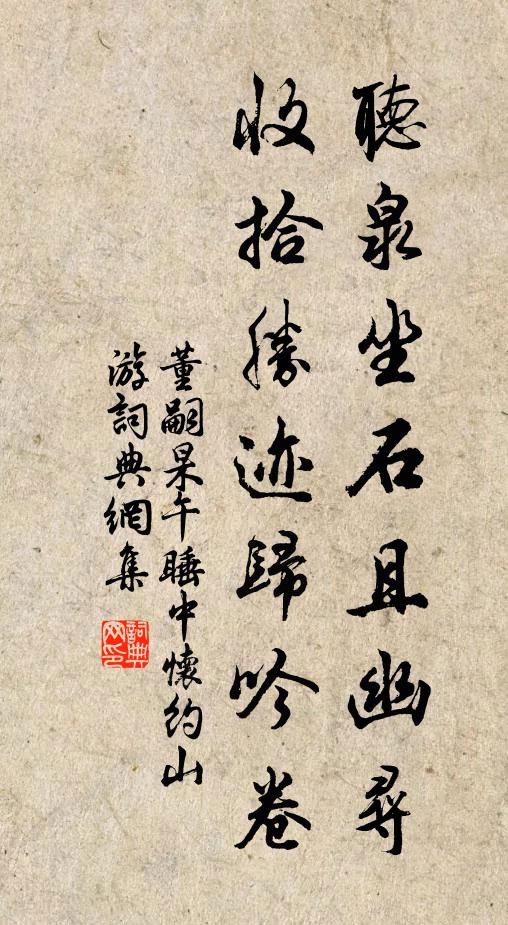 聽泉坐石且幽尋
收拾勝迹歸吟卷
董嗣杲午睡中懷約山
游詞典網集
詞典网印